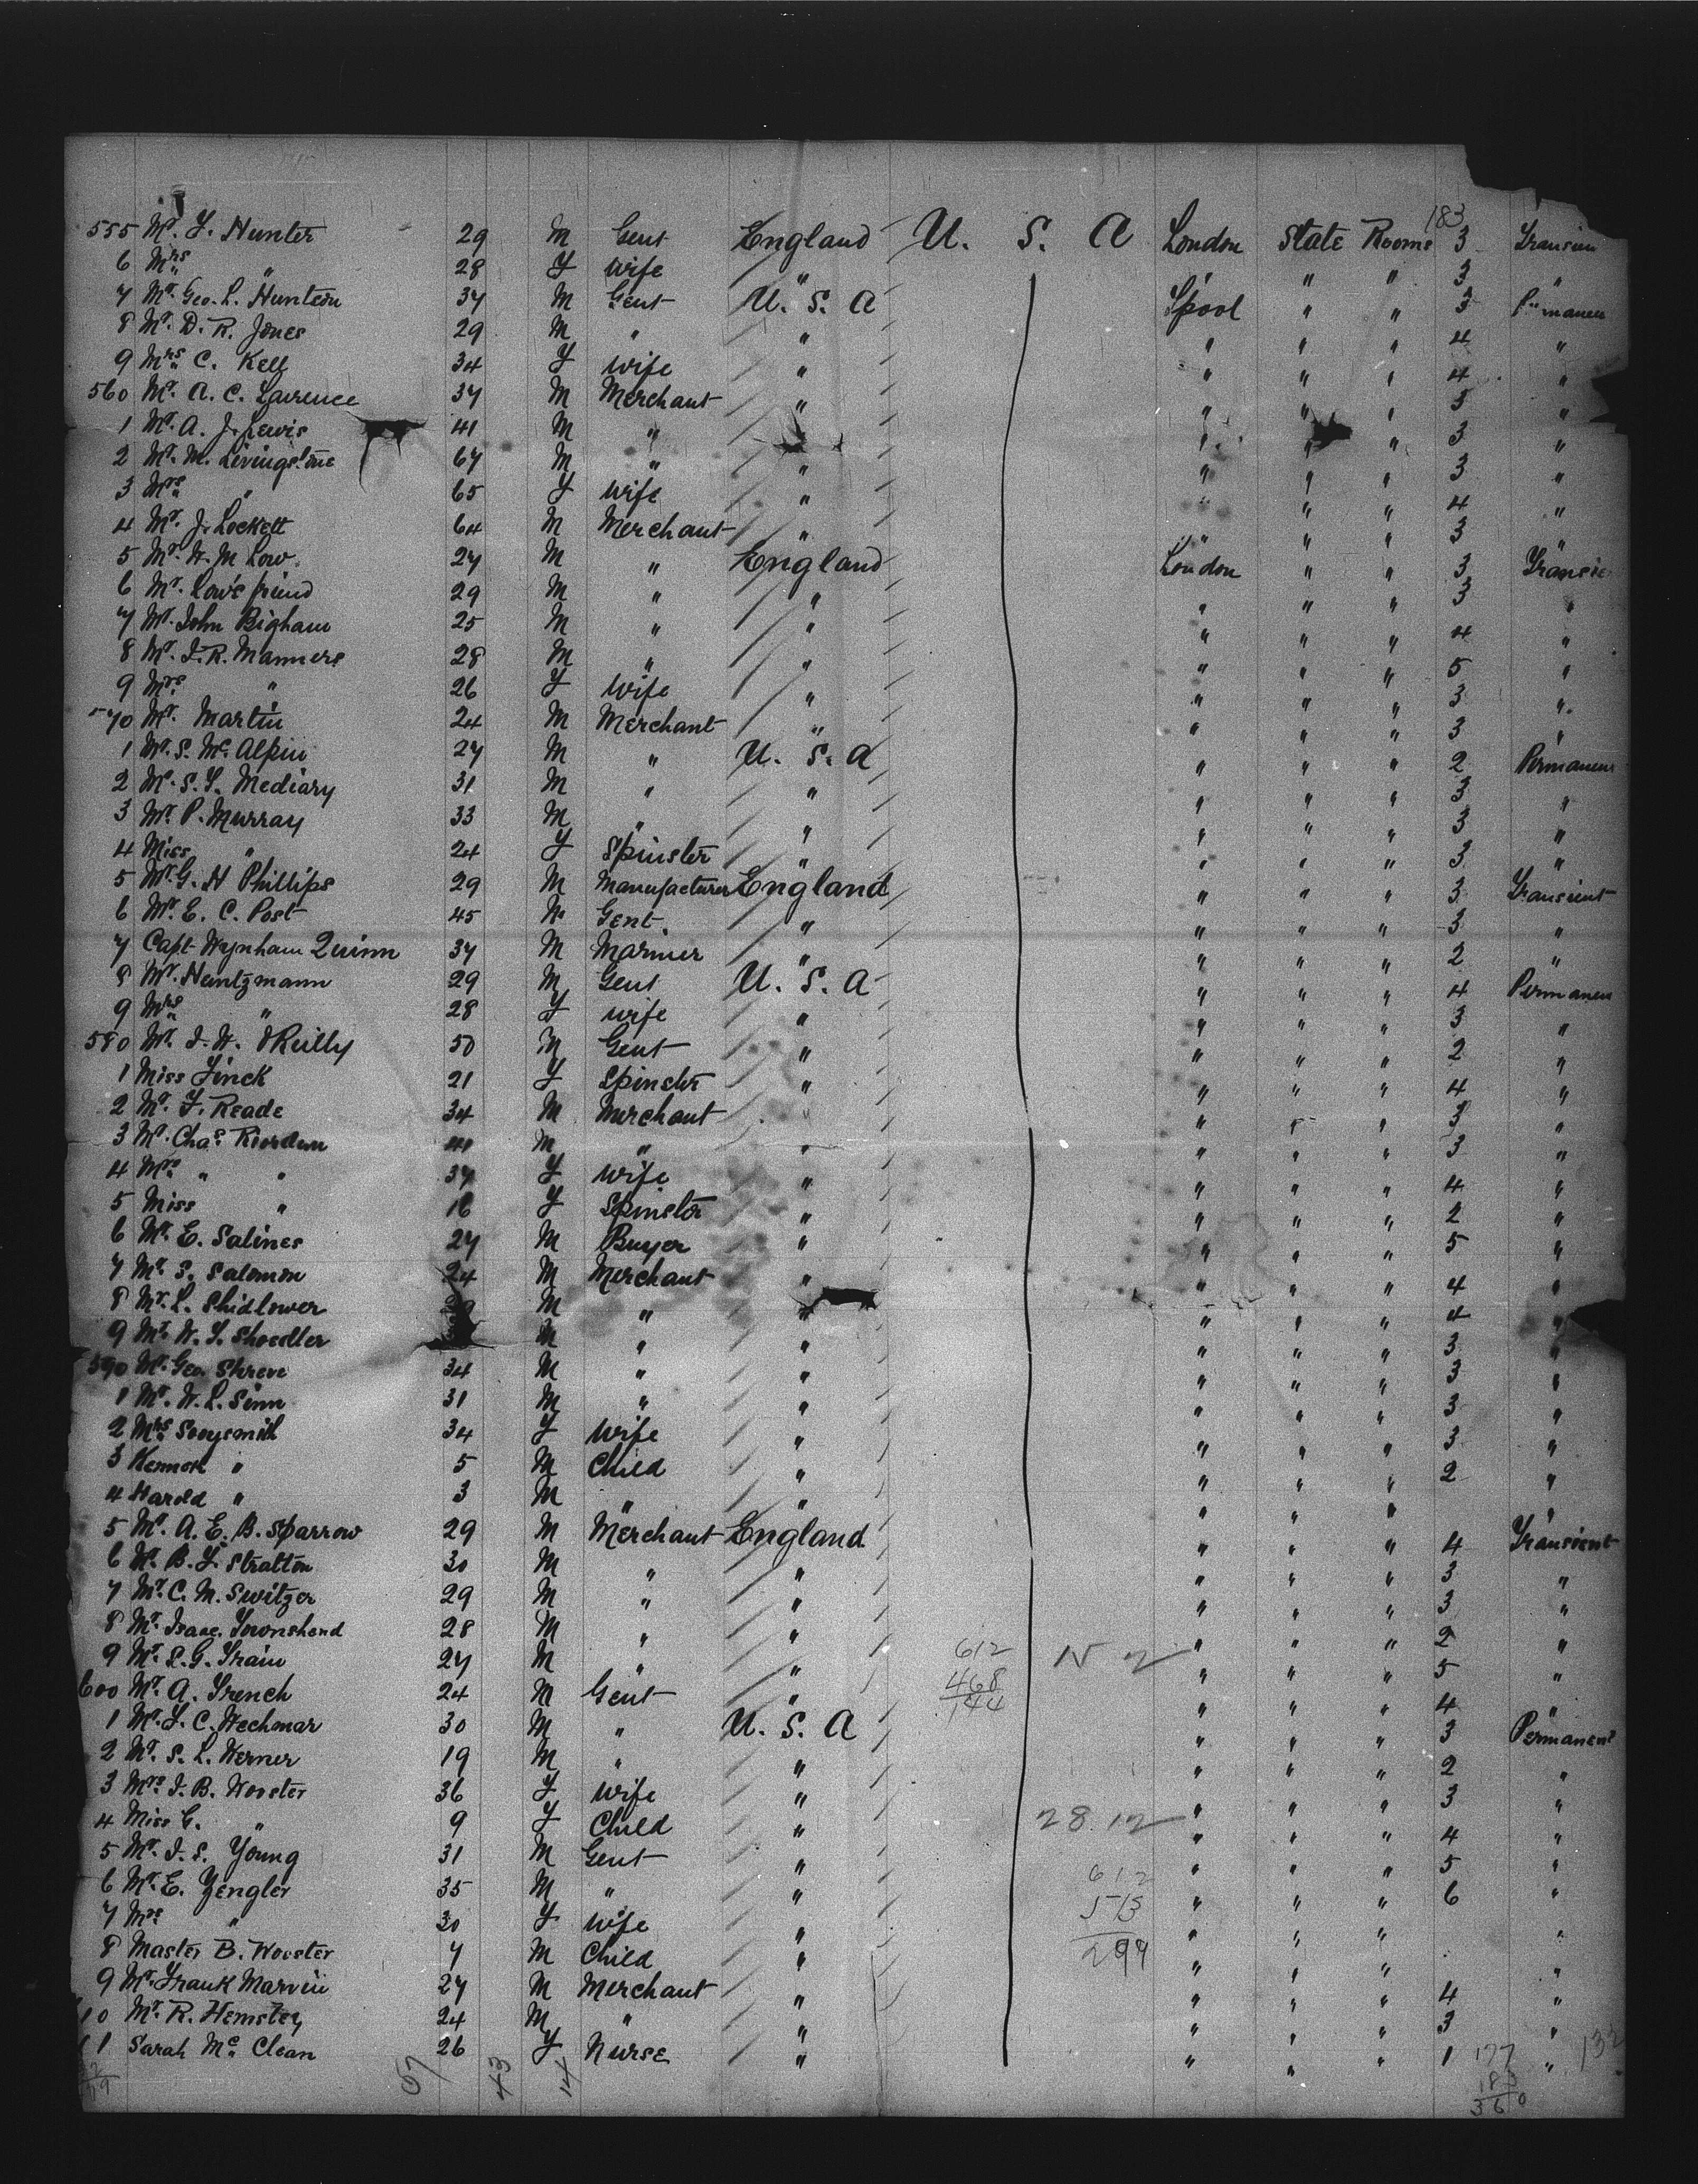 183
555 Mr. F. Hunter 29 M Gent England U. S. A London State Rooms 3
6 Mrs " 28 F Wife " " " 3 "
7 Mr. Geo. L. 37 M Gent U. S. A L'pool " " 3
8 Mr. D. R. Jones 29 M " " " " " 4 "
9 Mrs C. Kell 34 F Wife " " " " 4 "
560 Mr. A. C. Lawrence 37 M Merchant " " " " 3 "
1 Mr. A. J. Lewis 41 M " " " " 3 "
2 Mr. M. Livingstone 67 M " " " " " 3 "
3 Mrs " 65 F Wife " " " " 4 "
4 Mr. J. Lockett 64 M Merchant " " " " 3 "
5 Mr. W. M Low 27 M " England London " " 3
6 Mr. Low's friend 29 M " " " " " 3 "
7 Mr. John Bigham 25 M " " " " " 4 "
8 Mr. J. R. Manners 28 M " " " " " 5 "
9 Mrs " 26 F Wife " " " " 3 "
570 Mr. Martin 24 M Merchant " " " " 3 "
1 Mr. S. Mc. Alpin 27 M " U. S. A " " " 2 Permanent
2 Mr. S. T. Mediary 31 M " " " " " 3 "
3 Mr. P. Murray 33 M " " " " " 3 "
4 Miss " 24 F Spinster " " " " 3 "
5 Mr. G. H Phillips 29 M Manufacturer England " " " 3 Transient
6 Mr. E. C. Post 45 M Gent. " " " " 3 "
7 Capt Wynham Quinn 37 M Mariner " " " " 2 "
8 Mr. Heintzmann 29 M Gent U. S. A " " " 4 Permanen
9 Mrs " 28 F Wife " " " " 3 "
580 Mr. J. W. O'Reilly 50 M Gent " " " " 2 "
1 Miss Finck 21 F Spinster " " " " 4 "
2 Mr. F. Reade 34 M Merchant " " " 3 "
3 Mr. Chas. Riordan 41 M " " " " " 3 "
4 Mrs " " 37 F Wife " " " " 4 "
5 Miss " 16 F Spinster " " " " 2 "
6 Mr. E. Salines 27 M Buyer " " " " 5 "
7 Mr. S. Salomon 24 M Merchant " " " " 4 "
8 Mr. L. Shidlower M " " " " " 4 "
9 Mr. W. T. Shoedler M " " " " " 3 "
590 Mr. Geo. Shreve 34 M " " " " " 3 "
1 Mr. W. L. Sinn 31 M " " " " " 3 "
2 Mrs Sooysmith 34 F Wife " " " " 3 "
3 " 5 M Child " " " " 2 "
4 Harold " 3 M " " " " " "
5 Mr. A. E. B. Sparrow 29 M Merchant England " " " 4 Transient
6 Mr. B. F. Stratton 30 M " " " " " 3 "
7 Mr. C. M. Switzer 29 M " " " " " 3 "
8 Mr. Isaac Townshend 28 M " " " " " 2 "
9 Mr. S. G. Train 27 M " " 612 " " " 5 "
600 Mr. A. Trench 24 M Gent " 468 " " " 4 "
144
1 Mr. F. C. Wechmar 30 M " U. S. A " " " 3 Permanent
2 Mr. S. L. Werner 19 M " " " " " 2 "
3 Mrs J. B. Wooster 36 F Wife " " " " 3 "
4 Miss G. " 9 F Child " 28 12 " " " 4 "
5 Mr. J. S. Young 31 M Gent " " " " 5 "
6 Mr. E. Zengler 35 M " " 612 " " " 6 "
7 Mrs " 30 F Wife " " " " "
8 Master B. Wooster 7 M Child " 299 " " " "
9 Mr. Frank Marvin 27 M Merchant " " " " 4 "
10 Mr. R. Hemsley 24 M " " " " " 3 "
11 Sarah Mc. Clean 26 F Nurse " " " " 1 " 132
57 43 14 177
183
360